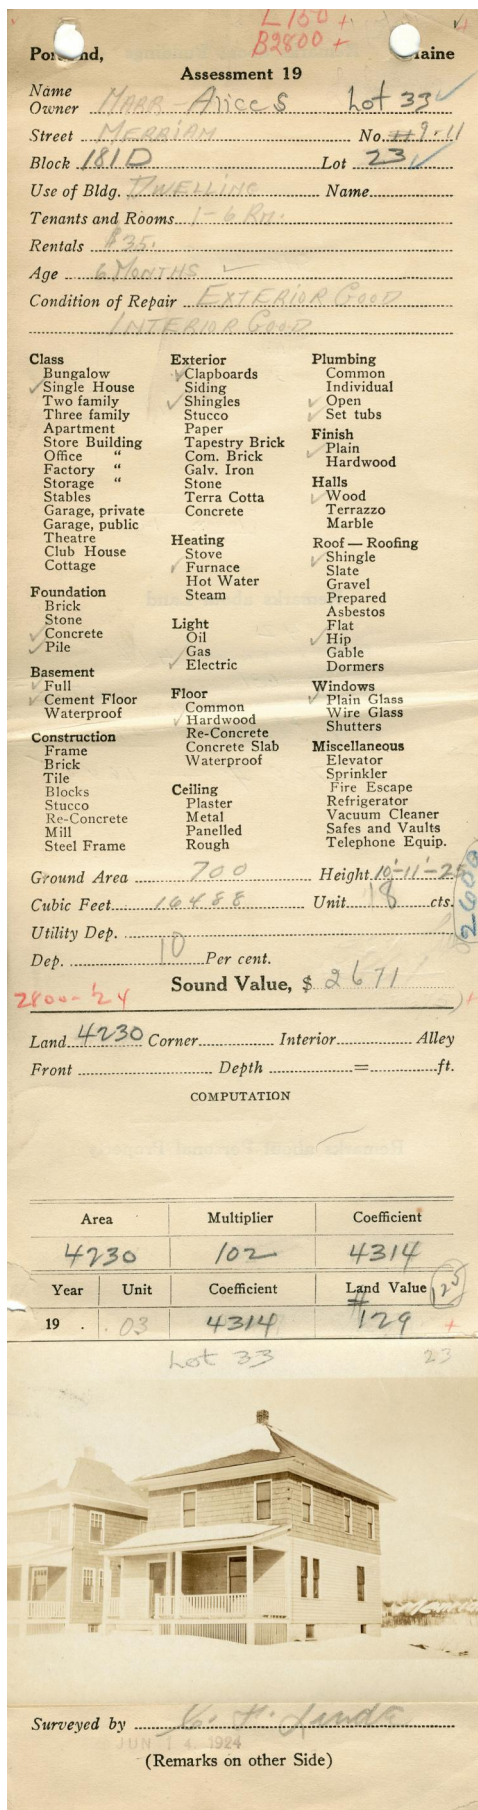 L 150 +
B2800 +
Maine
Assessment 19
Name
Owner Marr - Alice S Lot 33
Street Merriam No. 9-11
Block 181D Lot 23
Use of Bldg. Dwelling Name
Tenants and Rooms 1-6 Rm.
Rentals $35.
Age 6 Months
Condition of Repair Exterior Good
Interior Good
Class
Bungalow
Single House
Two family
Three family
Apartment
Store Building
Office "
Factory "
Storage "
Stables
Garage, private
Garage, public
Theatre
Club House
Cottage
Foundation
Brick
Stone
Concrete
Pile
Basement
Full
Cement Floor
Waterproof
Construction
Frame
Brick
Tile
Blocks
Stucco
Re-Concrete
Mill
Steel Frame
Exterior
Clapboards
Siding
Shingles
Stucco
Paper
Tapestry Brick
Com. Brick
Galv. Iron
Stone
Terra Cotta
Concrete
Heating
Stove
Furnace
Hot Water
Steam
Light
Oil
Gas
Electric
Floor
Common
Hardwood
Re-Concrete
Concrete Slab
Waterproof
Ceiling
Plaster
Metal
Panelled
Rough
Plumbing
Common
Individual
Open
Set tubs
Finish
Plain
Hardwood
Halls
Wood
Terrazzo
Marble
Roof — Roofing
Shingle
Slate
Gravel
Prepared
Asbestos
Flat
Hip
Gable
Dormers
Windows
Plain Glass
Wire Glass
Shutters
Miscellaneous
Elevator
Sprinkler
Fire Escape
Refrigerator
Vacuum Cleaner
Safes and Vaults
Telephone Equip.
Ground Area 700 Height 10'-11'-25
Cubic Feet 16488 Unit 18 cts.
2600
Utility Dep.
Dep. 10 Per cent.
Sound Value, $ 2671
2800-'24
Land 4230 Corner Interior Alley
Front Depth = ft.
COMPUTATION
Area Multiplier Coefficient
4230 102 4314
Year Unit Coefficient Land Value 125
19 . .03 4314 $129 +
Lot 33 23
Surveyed by
JUN 14 1924
(Remarks on other Side)